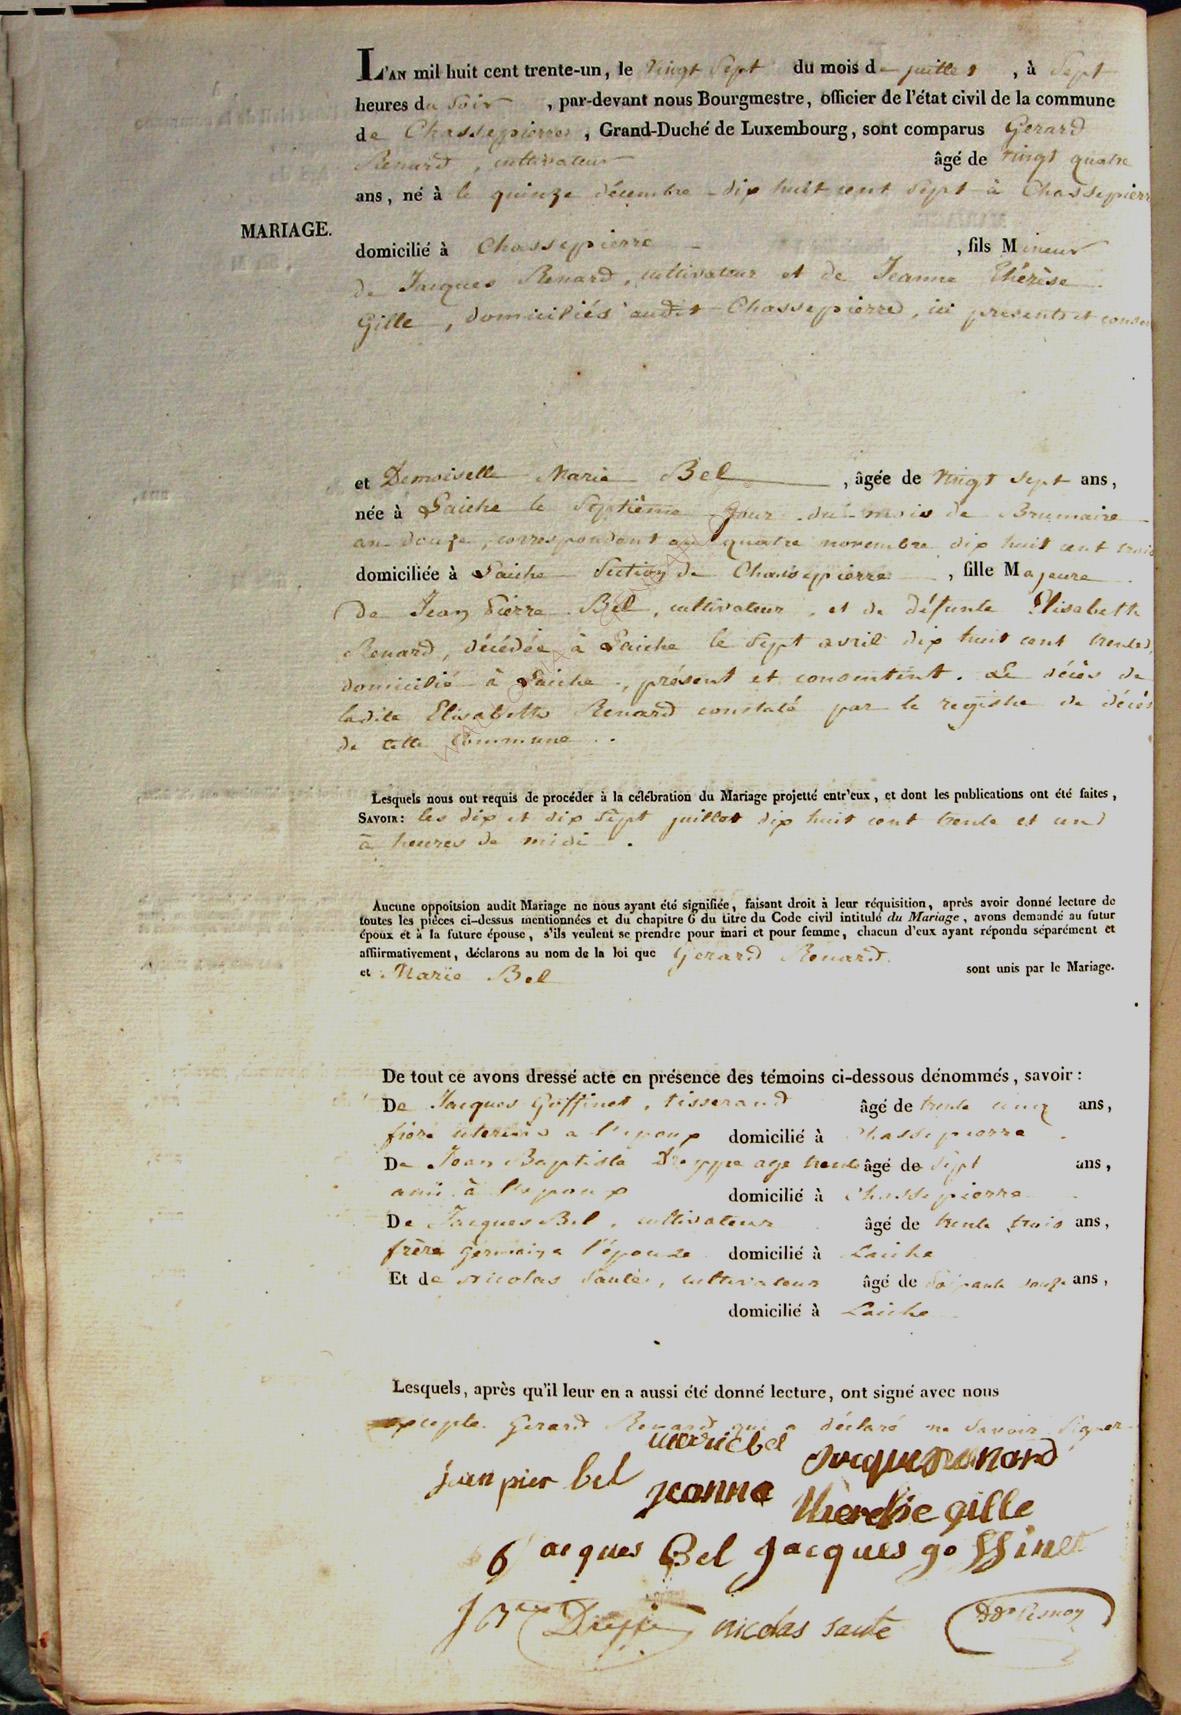 L'AN mil huit cent trente-un, le vingt Sept du mois de juillet, à Sept
heures du Soir, par-devant nous Bourgmestre, officier de l'état civil de la commune
de Chassepierre, Grand-Duché de Luxembourg, sont comparus Gerard
Renard, cultivateur âgé de vingt quatre
ans, né à le quinze décembre dix huit cent Sept à Chassepierre
MARIAGE.
domicilié à Chassepierre, fils Mineur
de Jacques Renard, cultivateur et de Jeanne Thérèse
Gille, domiciliés audit Chassepierre, ici presents et
et Demoiselle Marie Bel, âgée de vingt Sept ans,
née à Laiche le Septième jour du mois de Brumaire
an douze, correspondant au quatre novembre dix huit cent trois
domiciliée à Laiche Section de Chassepierre, fille Majeure
de Jean Pierre Bel, cultivateur, et de défunte Elisabeth
Renard, décédée à Laiche le Sept avril dix huit cent
domicilié à Laiche, présent et consentent. Le décès de
ladite Elisabeth Renard constaté par le registre de décès
de cette Commune.
Lesquels nous ont requis de procéder à la célébration du Mariage projetté entr'eux, et dont les publications ont été faites,
SAVOIR: les dix et dix Sept juillet dix huit cent trente et un
à heures de midi.
Aucune oppoitsion audit Mariage ne nous ayant été signifiée, faisant droit à leur réquisition, après avoir donné lecture de
toutes les pièces ci-dessus mentionnées et du chapitre 6 du titre du Code civil intitulé du Mariage, avons demandé au futur
époux et à la future épouse, s'ils veulent se prendre pour mari et pour femme, chacun d'eux ayant répondu séparément et
affirmativement, déclarons au nom de la loi que Gerard Renard
et Marie Bel sont unis par le Mariage.
De tout ce avons dressé acte en présence des témoins ci-dessous dénommés, savoir:
De Jacques Goffinet, tisserand âgé de trente cinq ans,
frère uterin a l'epoux domicilié à Chassepierre
De Jean Baptiste age trente âgé de Sept ans,
ami à l'epoux domicilié à Chassepierre
De Jacques Bel, cultivateur âgé de trente trois ans,
frère germain a l'épouse domicilié à Laiche
Et de Nicolas Sauté, cultivateur âgé de ans,
domicilié à Laiche
Lesquels, après qu'il leur en a aussi été donné lecture, ont signé avec nous
excepte Gerard Renard qui a déclaré ne Savoir Signer
marie bel Jacques Renard
jean pier bel jeanne therese gille
jacques Bel Jacques goffinet
nicolas saute